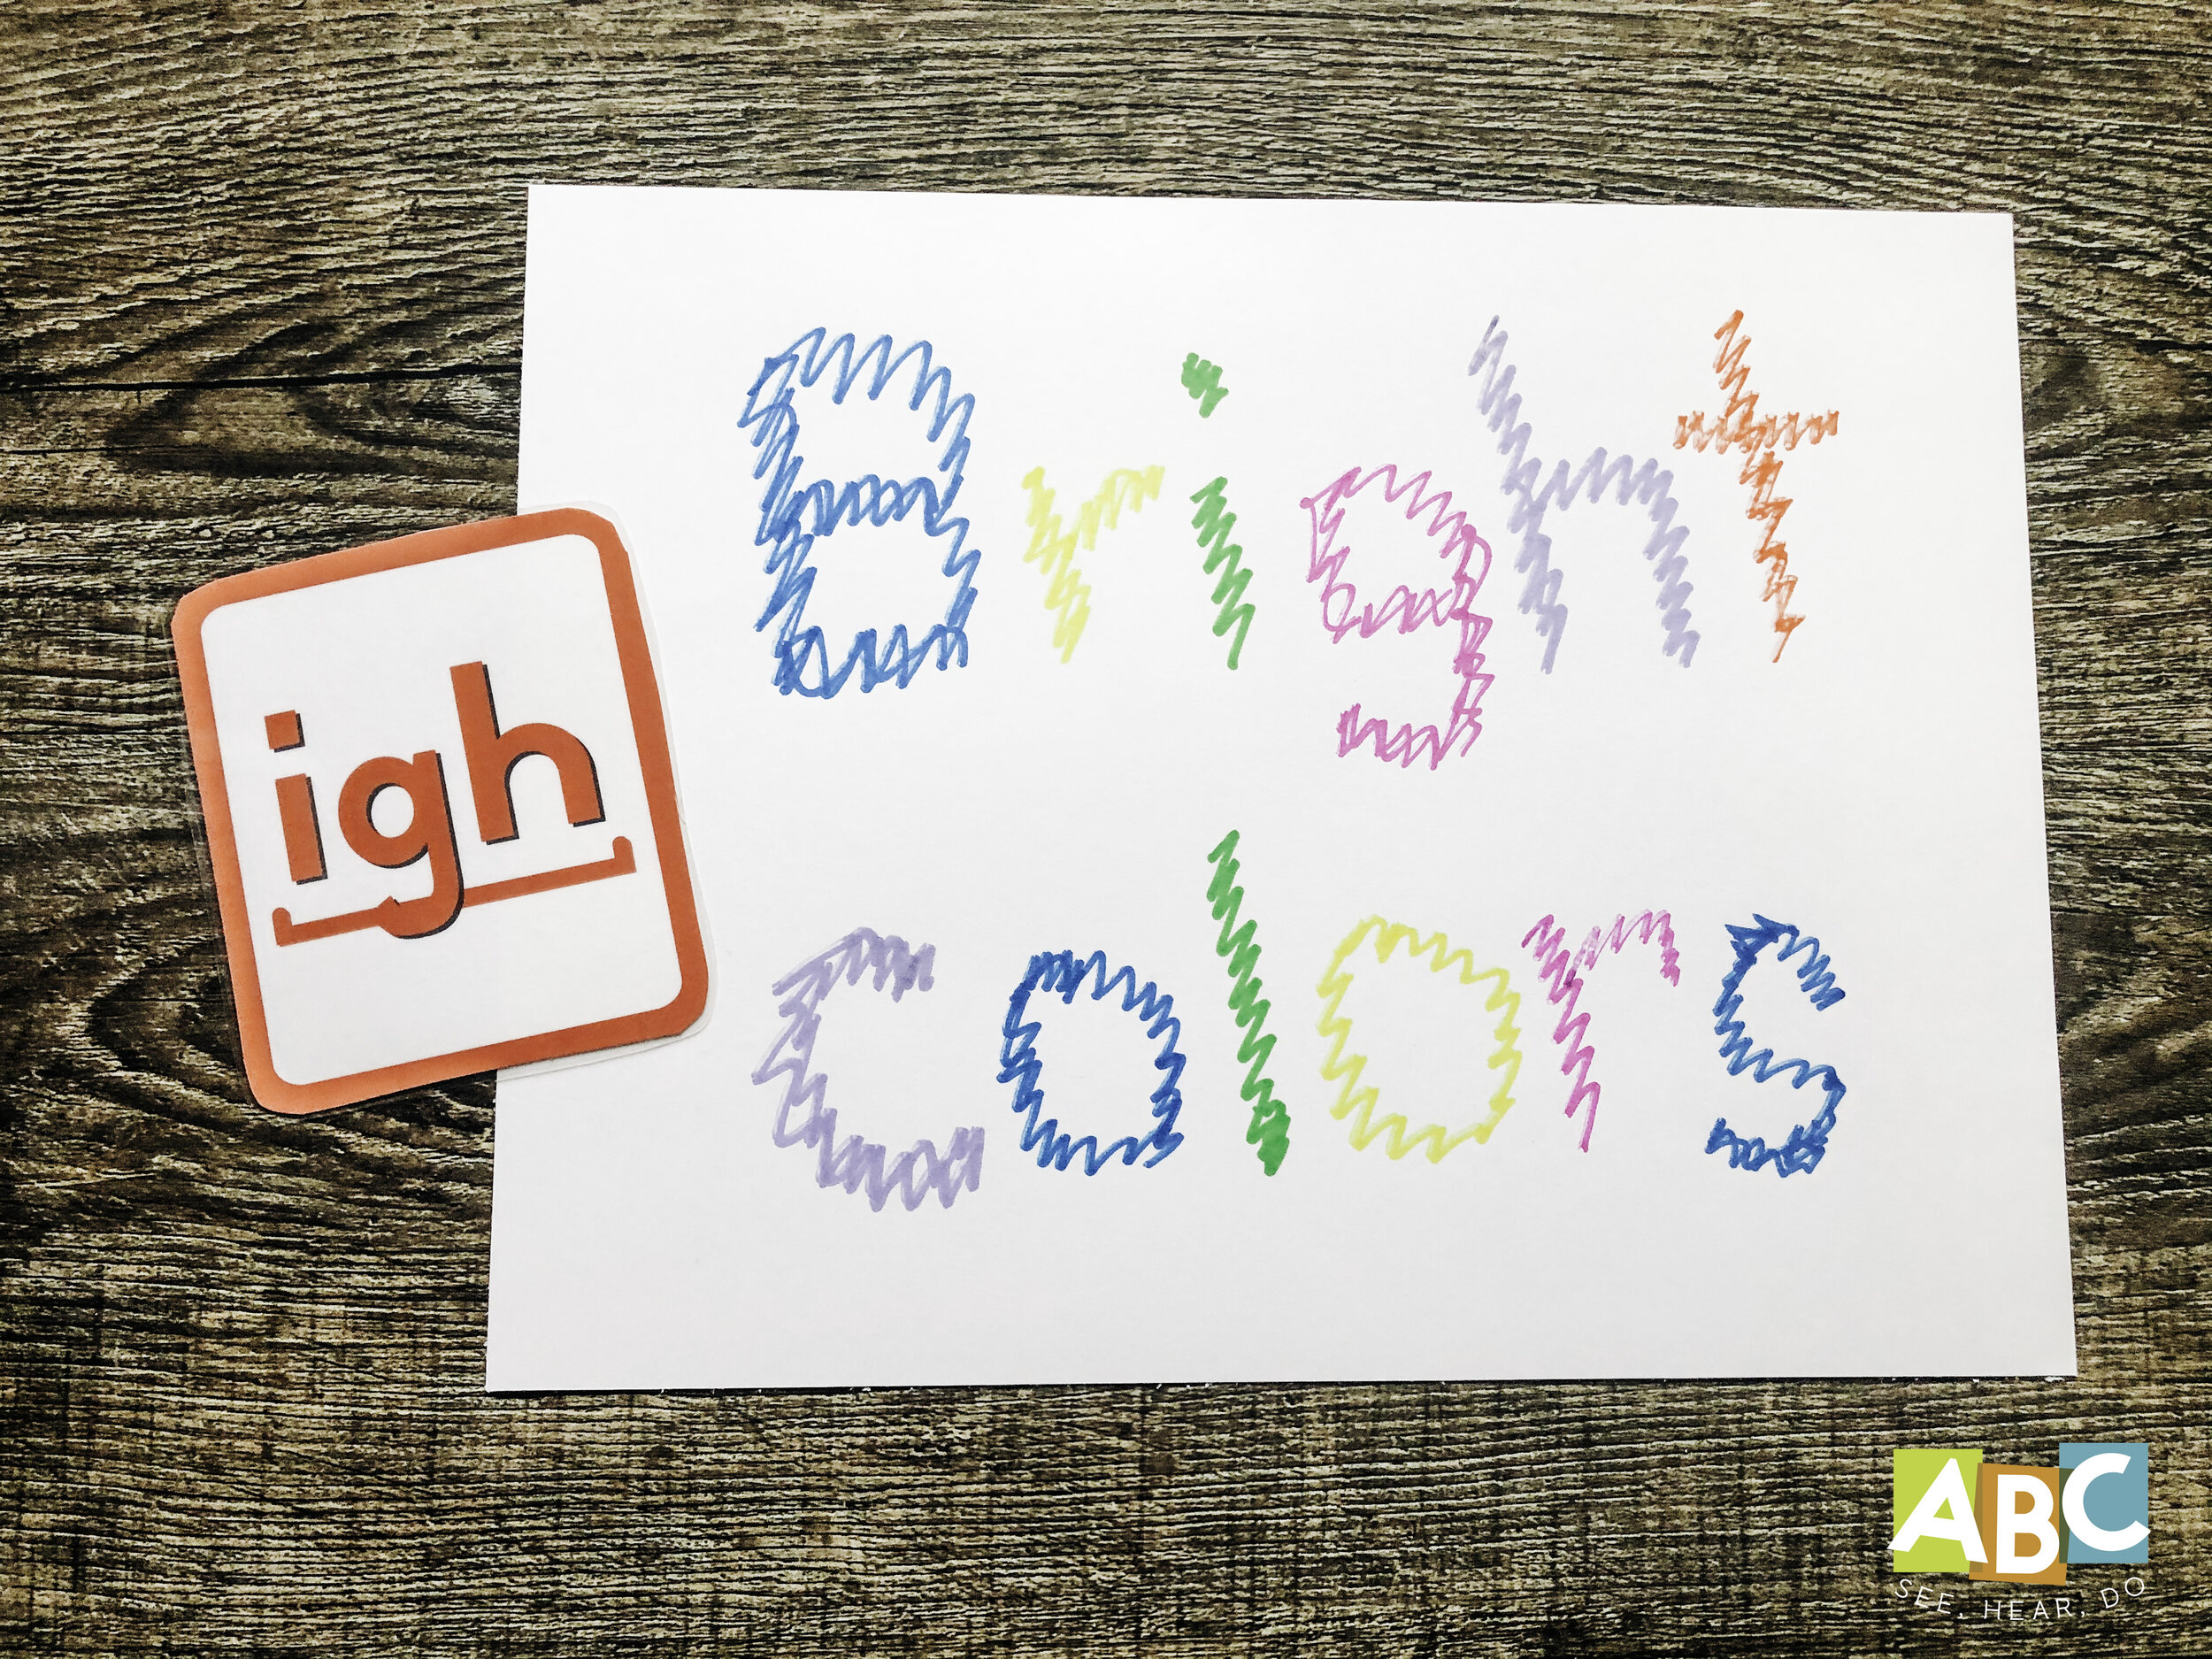 Bright
igh
colors
ABC
SEE, HEAR, DO